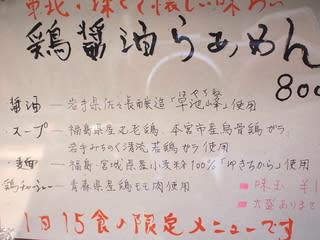 東北・深くて懐しい味わい
鶏醤油らぁめん
800
醤油 ― 岩手県佐々長醸造「早池峰」使用
スープ ― 福島県産 老鶏、本宮市産烏骨鶏 がら
岩手みちのく清流若鶏 がら 使用
麺 ― 福島・宮城県産小麦粉100%「ゆきちから」使用
鶏チャーシュー ― 青森県産鶏モモ肉使用
味玉 ¥1
大盛あります
1日15食の限定メニューです